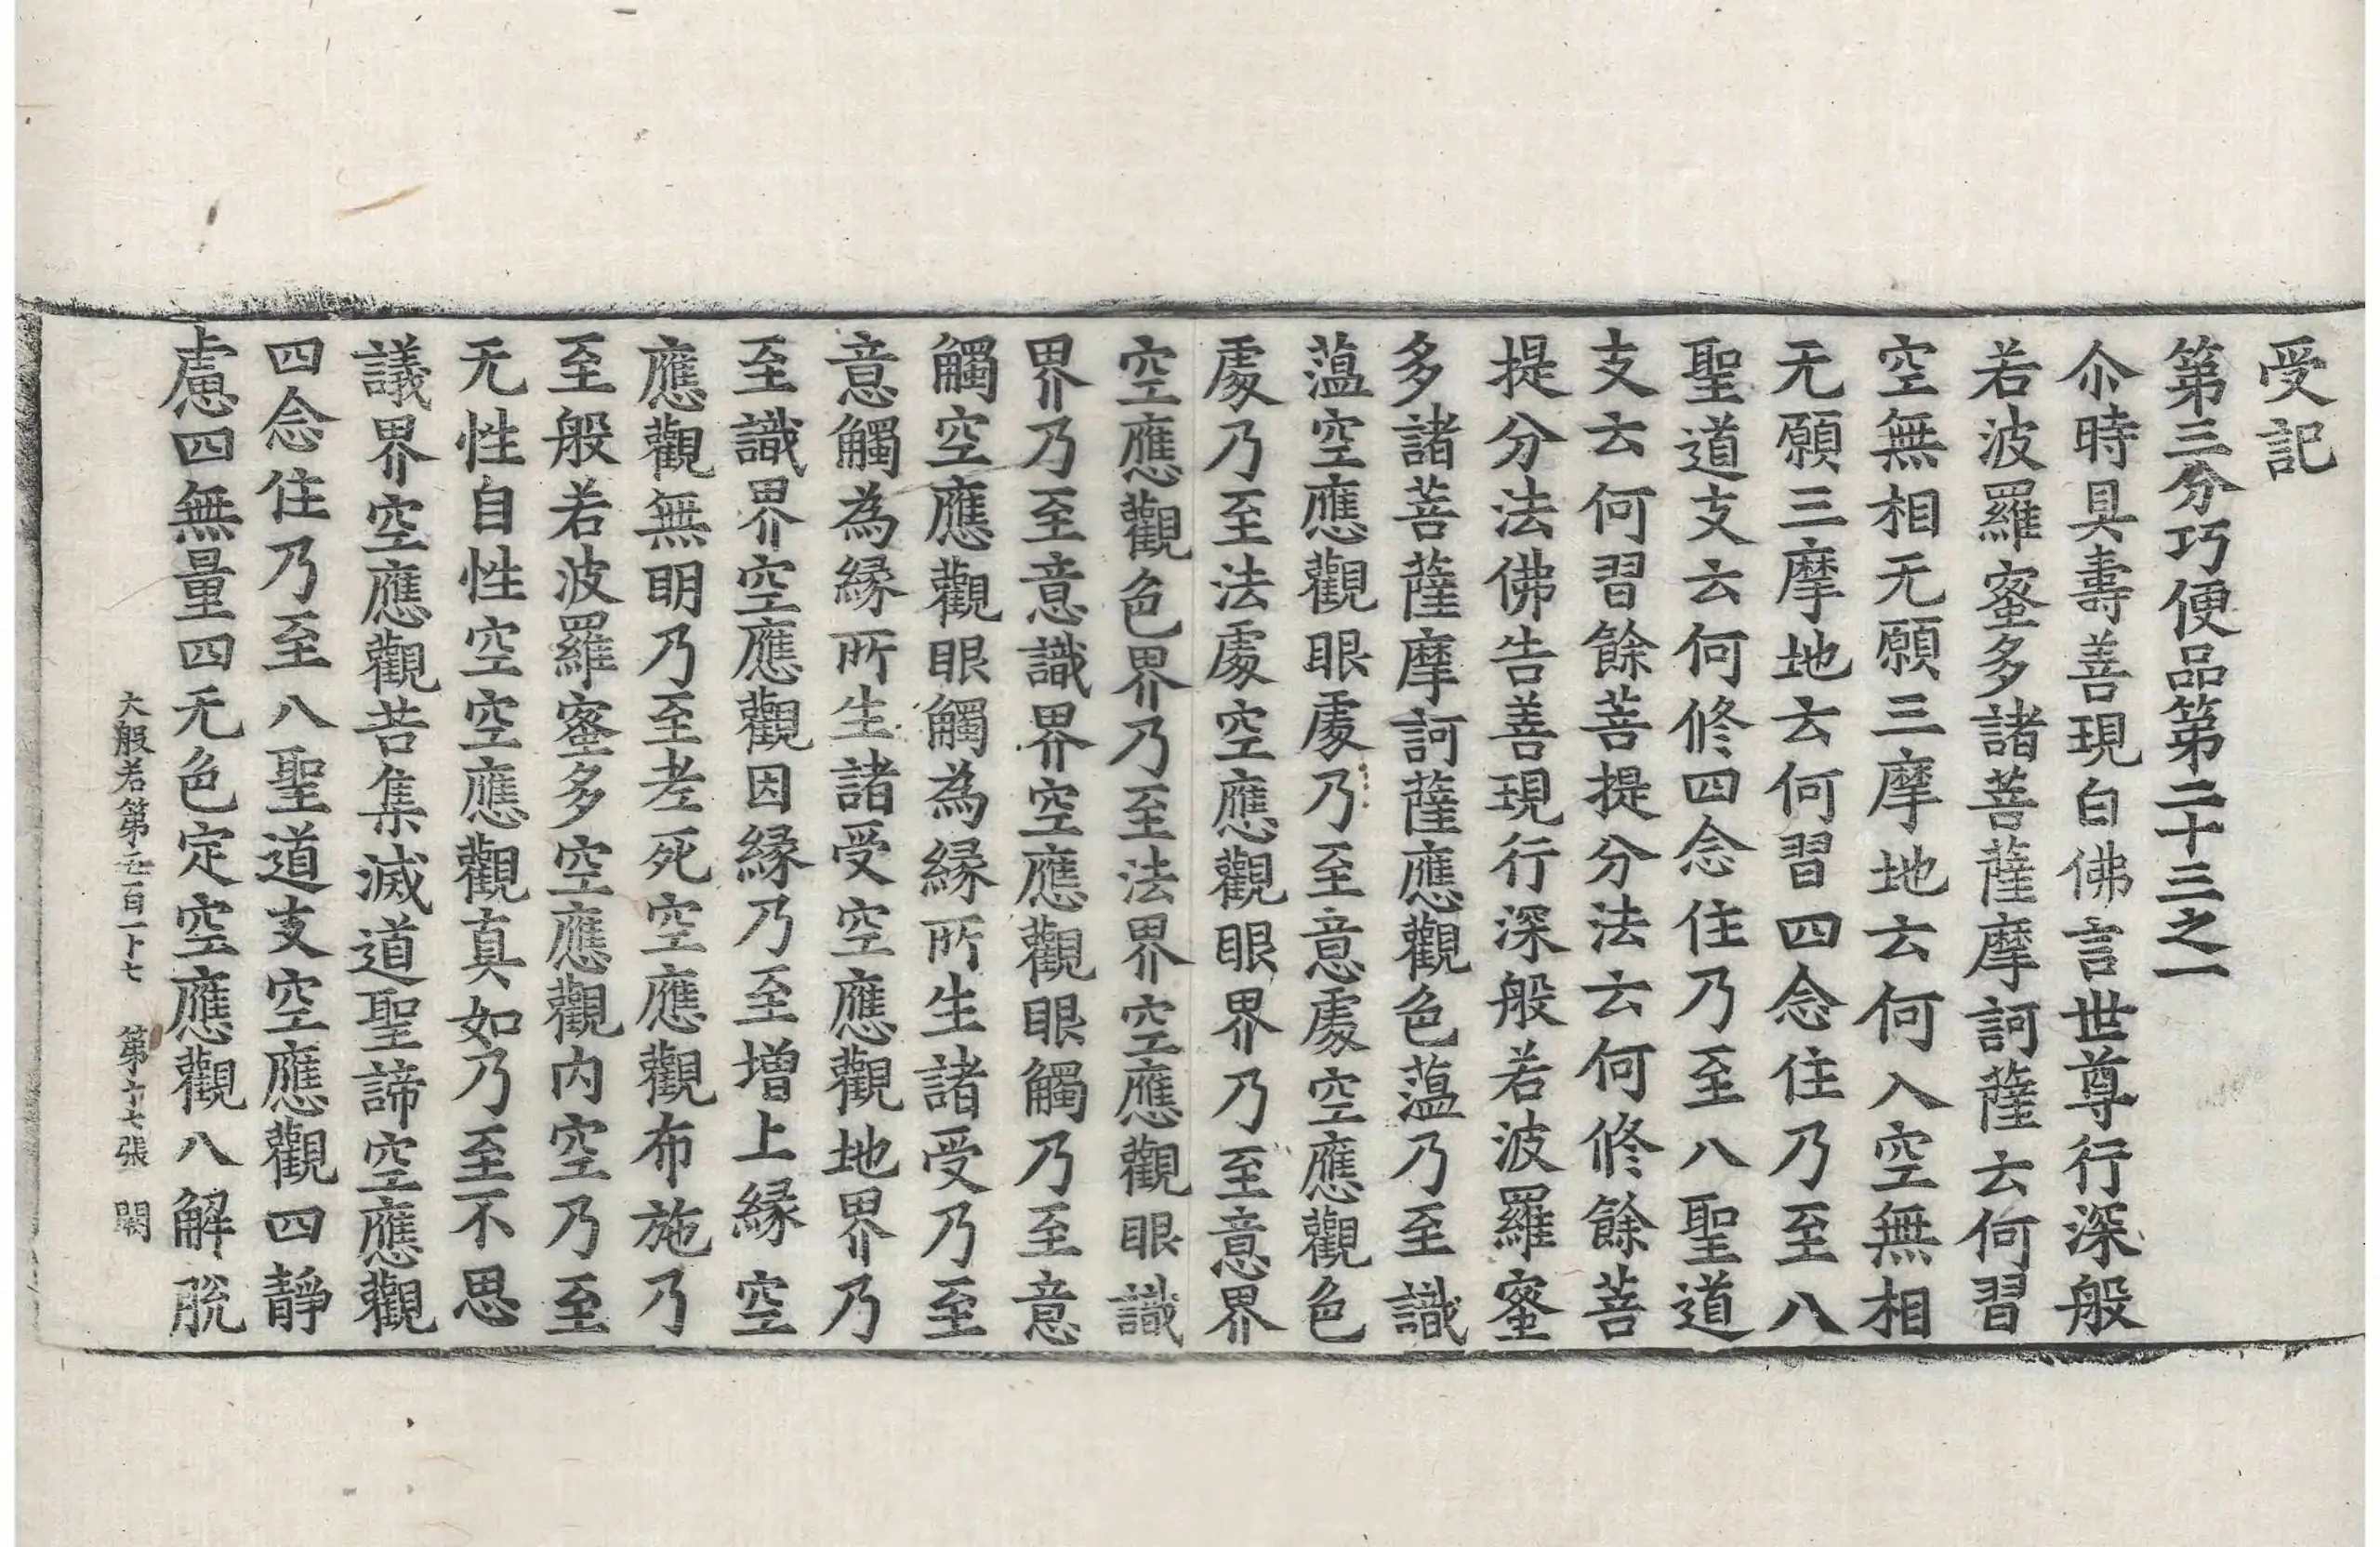 受記
第三分巧便品第二十三之一
尒時具壽善現白佛言世尊行深般
若波羅蜜多諸菩薩摩訶薩云何習
空無相无願三摩地云何入空無相
无願三摩地云何習四念住乃至八
聖道支云何修四念住乃至八聖道
支云何習餘菩提分法云何修餘菩
提分法佛告善現行深般若波羅蜜
多諸菩薩摩訶薩應觀色蕰乃至識
蕰空應觀眼處乃至意處空應觀色
處乃至法處空應觀眼界乃至意界
空應觀色界乃至法界空應觀眼識
界乃至意識界空應觀眼觸乃至意
觸空應觀眼觸為縁所生諸受乃至
意觸為縁所生諸受空應觀地界乃
至識界空應觀因縁乃至增上縁空
應觀無明乃至老死空應觀布施乃
至般若波羅蜜多空應觀内空乃至
无性自性空空應觀真如乃至不思
議界空應觀苦集滅道聖諦空應觀
四念住乃至八聖道支空應觀四靜
慮四無量四无色定空應觀八解脫
大般若第五百一十七 第十七張 闕